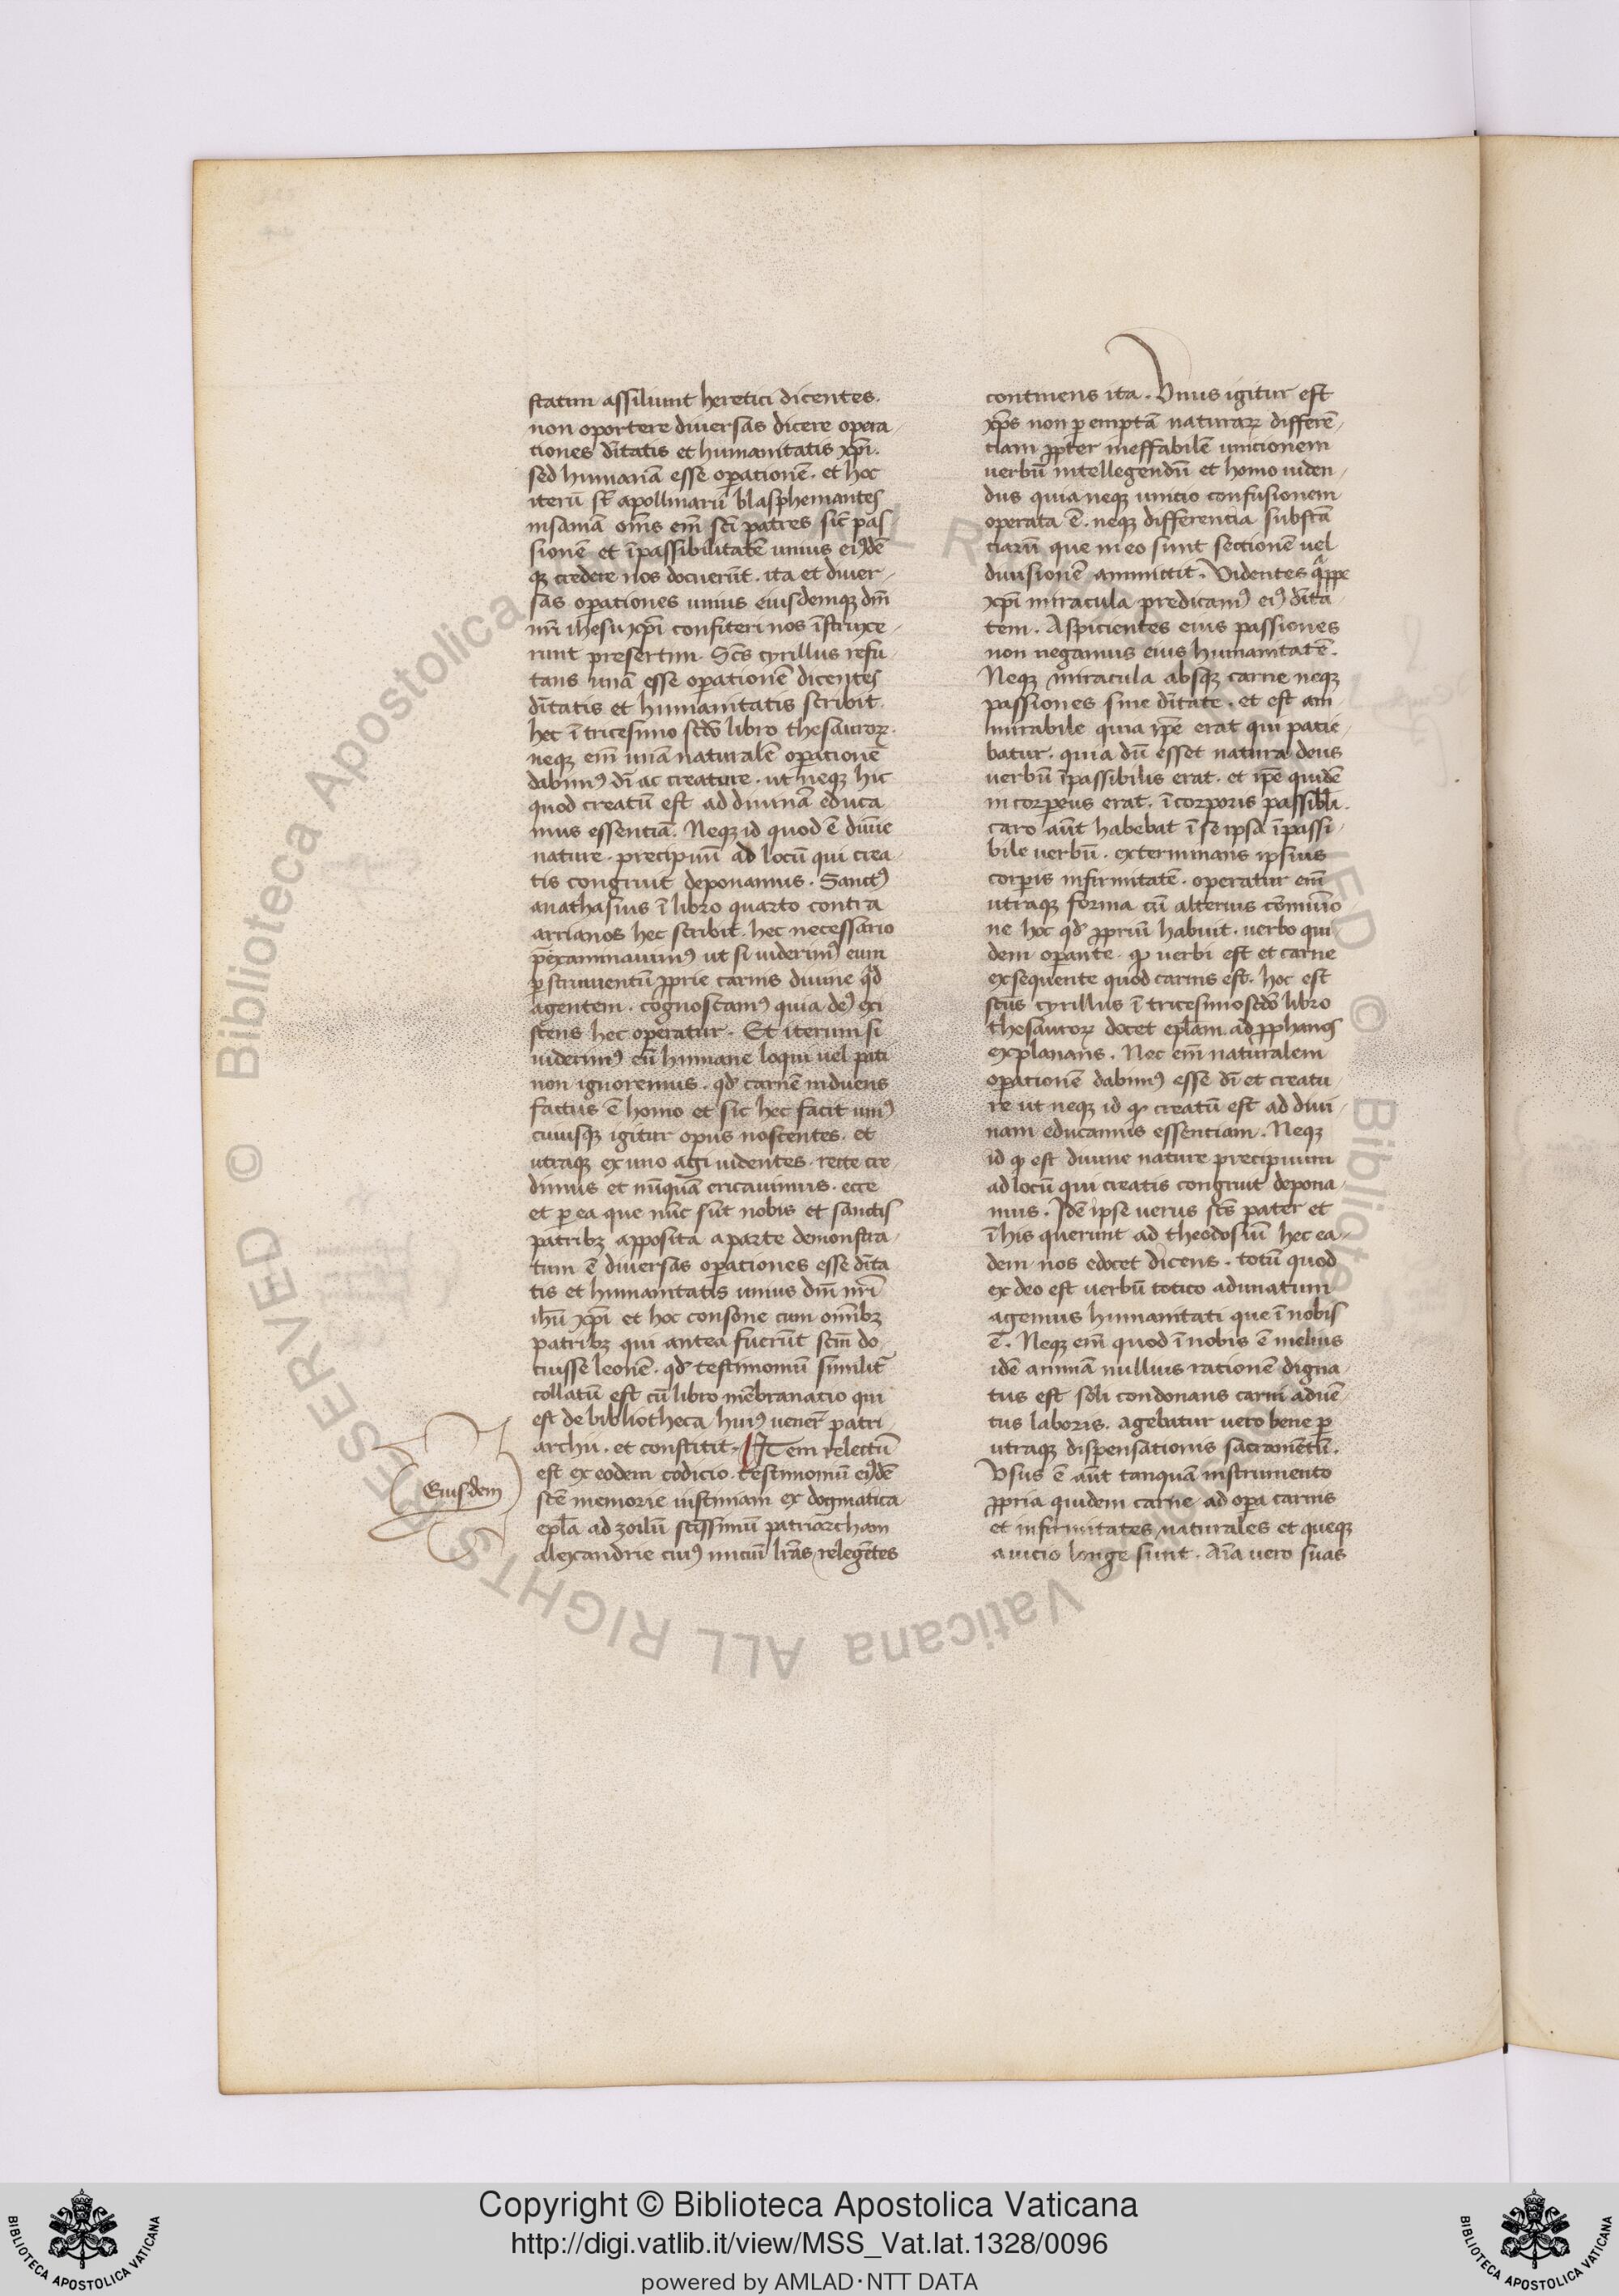 statim assiliunt heretici dicentes.
non oportere diuersas dicere opera-
ciones dı̄tatis et humanitatis xp̄i.
sed humanā esse oꝑationē. et hoc
iterū sc̄ apollinarū blasphemantes
insaniā om̄s em̄ sc̄i patres sic̄ pas
sionē et ı̄passibilitatē unius eiꝰdē
qꝫ credere nos docuerūt. ita et diuer-
sas oꝑationes unius eiusdemqꝫ dn̄i
nr̄i ihesu xp̄i confiteri nos ı̄struxe-
runt presertim. Sc̄s cyrillus refu-
tans unā esse oꝑationē dicentes
dı̄tatis et humanitatis scribit.
hec ı̄ tricesimo scd̄o libro thesauroꝝ.
neqꝫ em̄ unā naturalē oꝑationē
dabimꝰ dı̄ ac creature. ut neqꝫ hic
quod creatū est ad diuinā educa
mus essentiā. Neqꝫ id quod ē diuı̄e
nature. precipuū ad locū qui crea-
tis congruit deponamus. Sanctꝰ
anathasius ı̄ libro quarto contra
arrianos hec scribit. hec necessario
p̄examinauimꝰ ut si uiderimꝰ eum
ꝑ strumentū ꝓprie carnis diuine qd̄
agentem. cognoscamꝰ quia deꝰ exi
stens hec operatur. Et iterum si
uiderimꝰ eū humane loqui uel pati
non ignoremus. qd̄ carnē induens
factus ē homo et sic hec facit uniꝰ
cuiusqꝫ igitur opus noscentes. et
utraqꝫ ex uno agi uidentes. recte cre-
dimus et nūquā erranimus. ecce
et ꝑ ea que nūc sūt nobis et sanctis
patribꝫ apposita aparte demonstra-
tum ē diuersas oꝑationes esse dı̄ta-
tis et humanitatis unius dn̄i nr̄i
ihū xp̄i et hoc consone cum omı̄bꝫ
patribꝫ qui antea fuerūt scm̄ do-
cuisse leonē. qd̄ testimoniū similit̄
collatū est cū libro mēbranacio qui
est de bibliotheca huiꝰ uener̄ patri-
archii. et constitit. Item relectū
Eiusdem
est ex eodem codicio. testimoniū eiꝰdē
sc̄e memorie iustiniani ex dogmatica
epl̄a ad zoilū sc̄issimū patriarcham
alexandrie cuiꝰ iniciū lr̄as relegētes
continens ita. Vnus igitur est
xp̄s non ꝑemptā naturaꝝ differē-
tiam ꝓpter ineffabilē unicionem
uerbū intellegendū et homo uiden-
dus quia neqꝫ unicio confusionem
operata ē. neqꝫ differentia substā
ciarū que in eo sunt sectionē uel
diuisionē ammittit. Videntes qͣppe
xp̄i miracula predicamꝰ eiꝰ dı̄ta-
tem. Aspicientes eius passiones
non negamus eius humanitatē.
Neqꝫ miracula absqꝫ carne neqꝫ
passiones sine dı̄tate. et est am
mirabile quia ip̄e erat qui patie-
batur. quia dū esset natura deus
uerbū ı̄passibilis erat. et ip̄e quidē
in corpeus erat. ı̄ corporis passibl̄i.
caro aūt habebat ı̄ se ipsa ı̄passi-
bile uerbū. exterminans ipsius
corꝑis infirmitatē. operatur em̄
utraqꝫ forma cū alterius cōmunio
ne hoc qd̄ ꝓpriū habuit. uerbo qui
dem oꝑante. qd̄ uerbi est et carne
exsequente quod carnis est. hoc est
scūs cyrillus ı̄ tricesimo scd̄o libro
thesauroꝝ docet epl̄am ad ꝓphanos
explanans. Nec em̄ naturalem
oꝑationē dabimꝰ esse dı̄ et creatu-
re ut neqꝫ id qd̄ creatū est ad diui-
nam educamus essentiam. Neqꝫ
id qd̄ est diuine nature precipuum
ad locū qui creatis congruit depona-
mus. Idē ipse uerus sc̄s pater et
ı̄ his querunt ad theodosiū hec ea-
dem nos edocet dicens. totū quod
ex deo est uerbū totico adunatum
agemus humanitati que ı̄ nobis
ē. Neqꝫ em̄ quod ı̄ nobis ē melius
idē animā nullius rationē digna-
tus est soli condonans carni aduē-
tus laboris. agebatur uero bene ꝑ
utraqꝫ dispensationis sacramētū.
Vsus ē aūt tanquā instrumento
ꝓpria quidem carne ad oꝑa carnis
et infirmitates naturales et queqꝫ
a uicio longe sunt. Aı̄a uero suas
Copyright © Biblioteca Apostolica Vaticana
http://digi.vatlib.it/view/MSS_Vat.lat.1328/0096
powered by AMLAD·NTT DATA
BIBLIOTECA APOSTOLICA VATICANA
BIBLIOTECA APOSTOLICA VATICANA